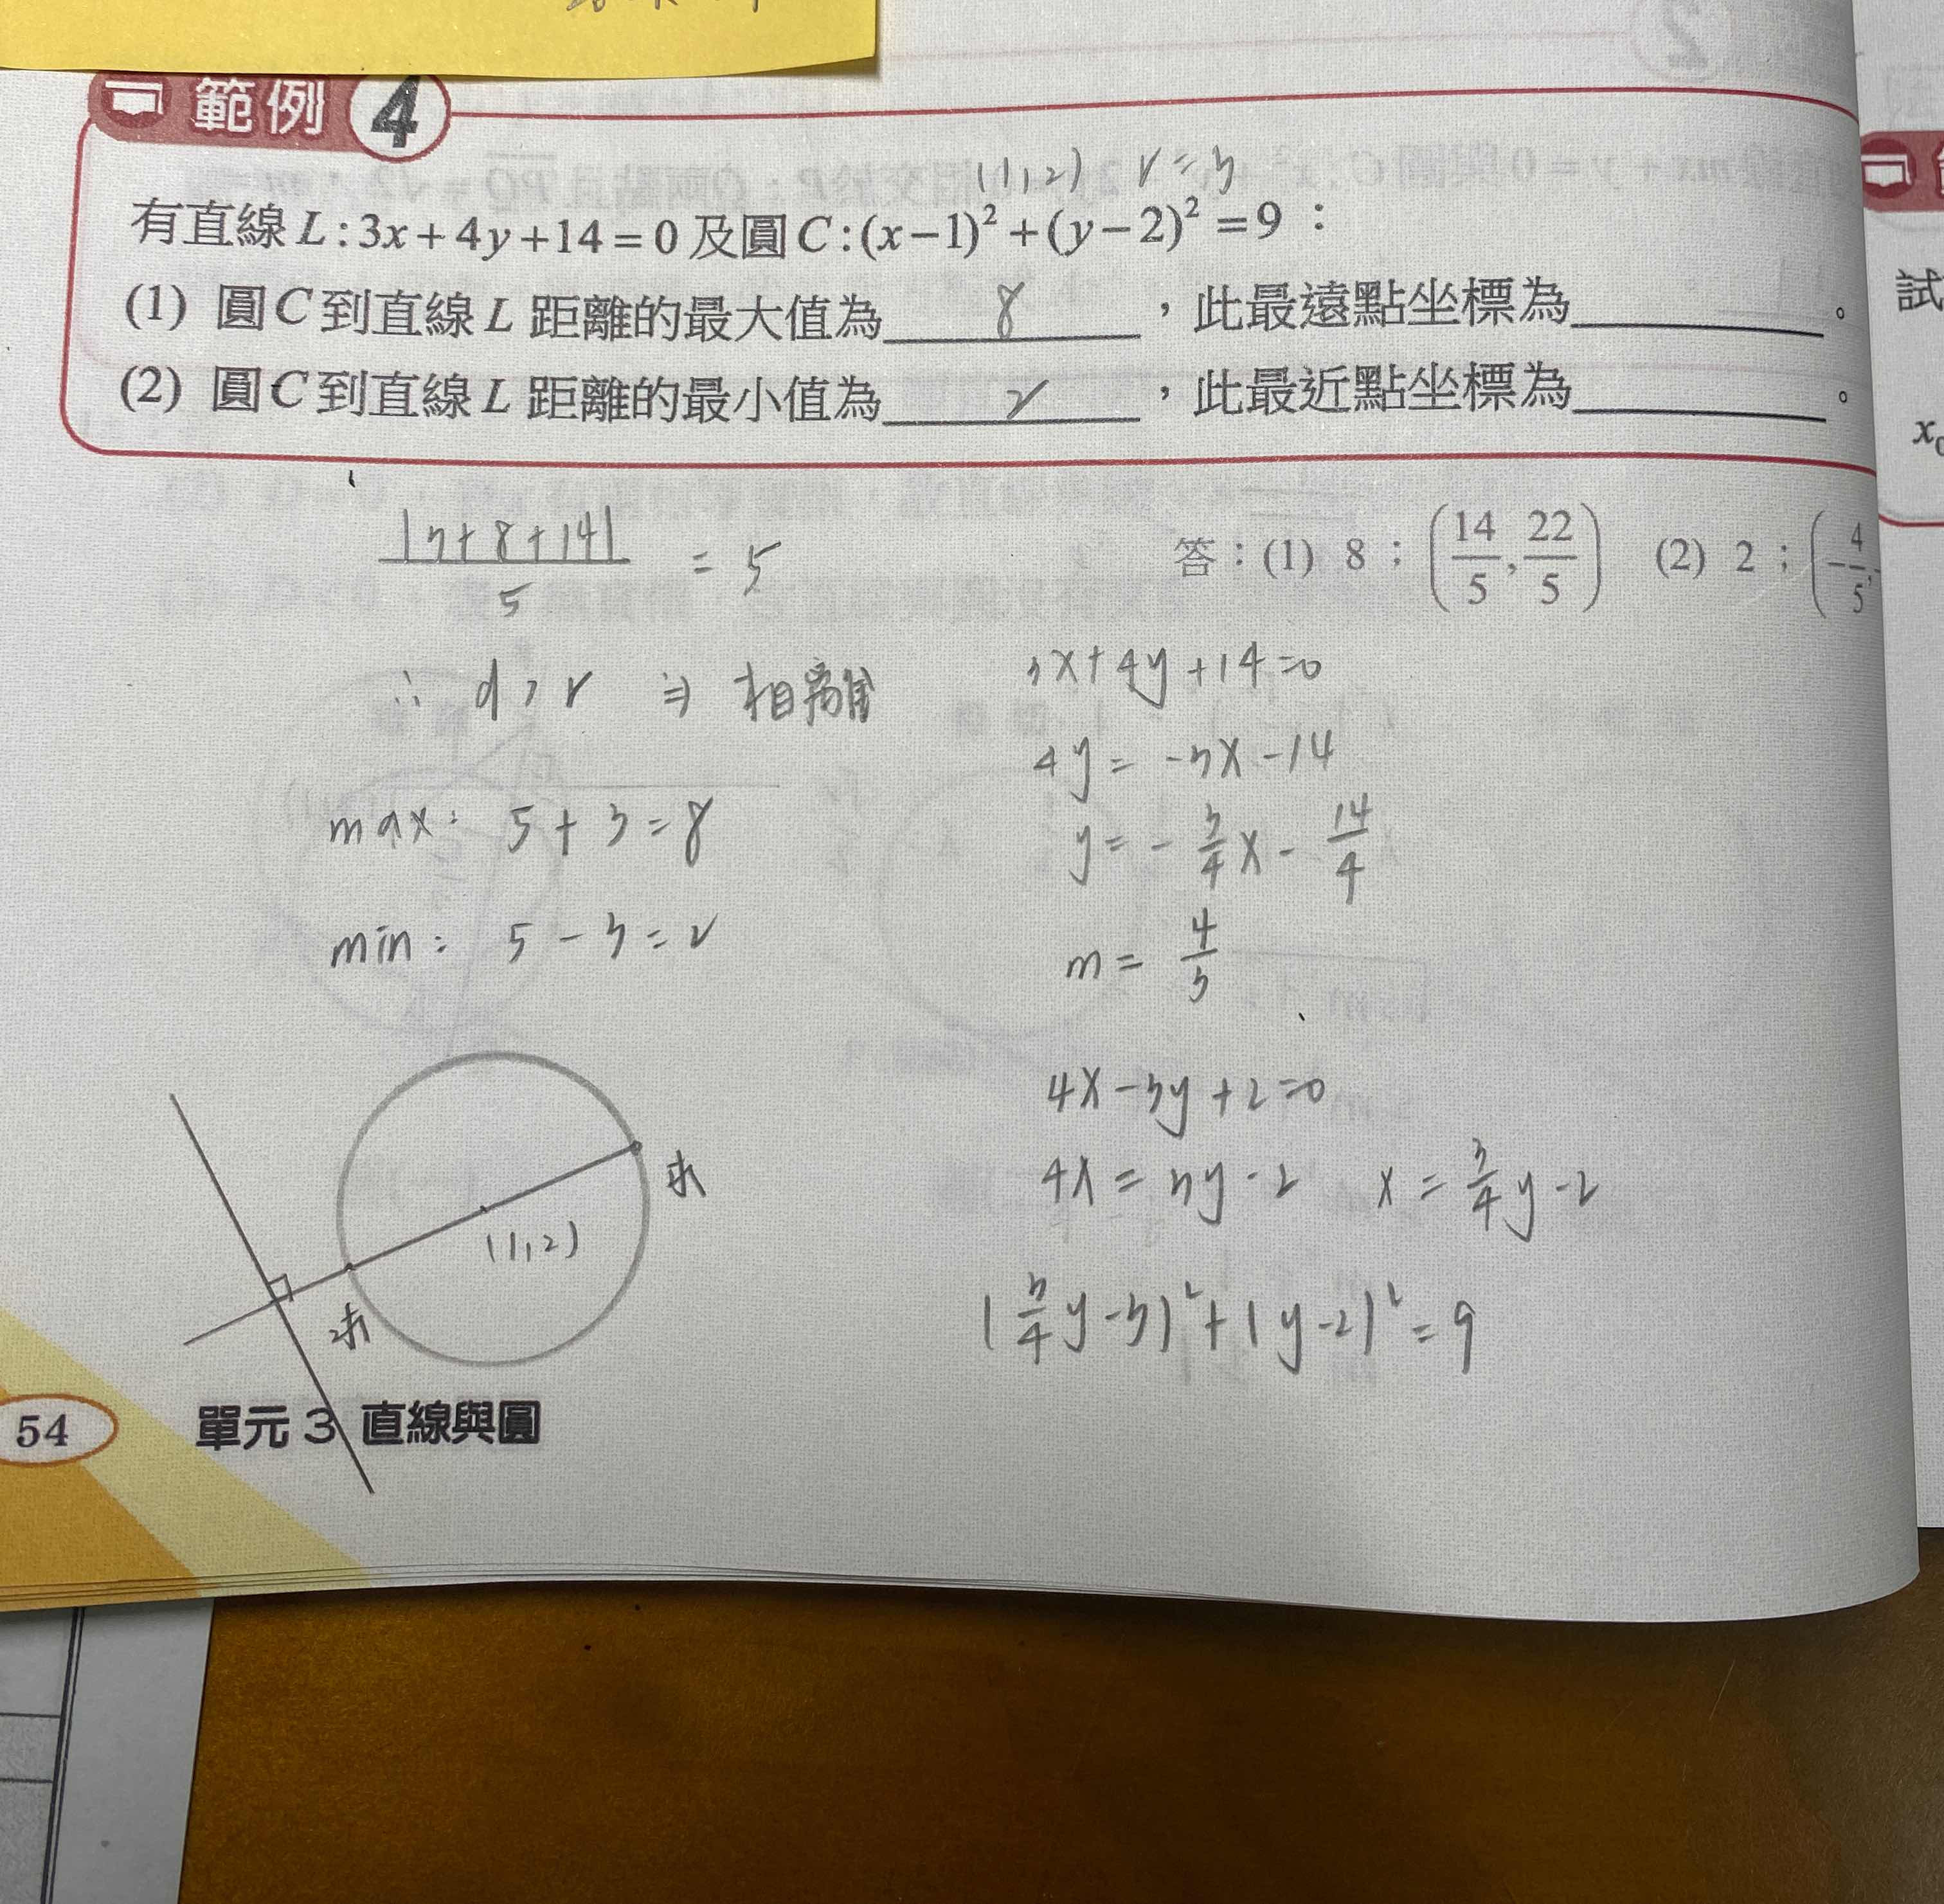 範例 4
(1,2) r=3
有直線L:3x+4y+14=0及圓C:(x-1)²+(y-2)²=9：
(1) 圓C到直線L距離的最大值為 8 ，此最遠點坐標為______。
(2) 圓C到直線L距離的最小值為 2 ，此最近點坐標為______。
試
答：(1) 8；(14/5, 22/5) (2) 2；(-4/5,
|3+8+14|/5 = 5
∴ d>r ⇒ 相離
max: 5+3=8
min: 5-3=2
3x+4y+14=0
4y=-3x-14
y=-3/4x-14/4
m=4/3
4x-3y+2=0
4x=3y-2 x=3/4y-2
(3/4y-3)²+(y-2)²=9
(1,2)
54 單元3 直線與圓